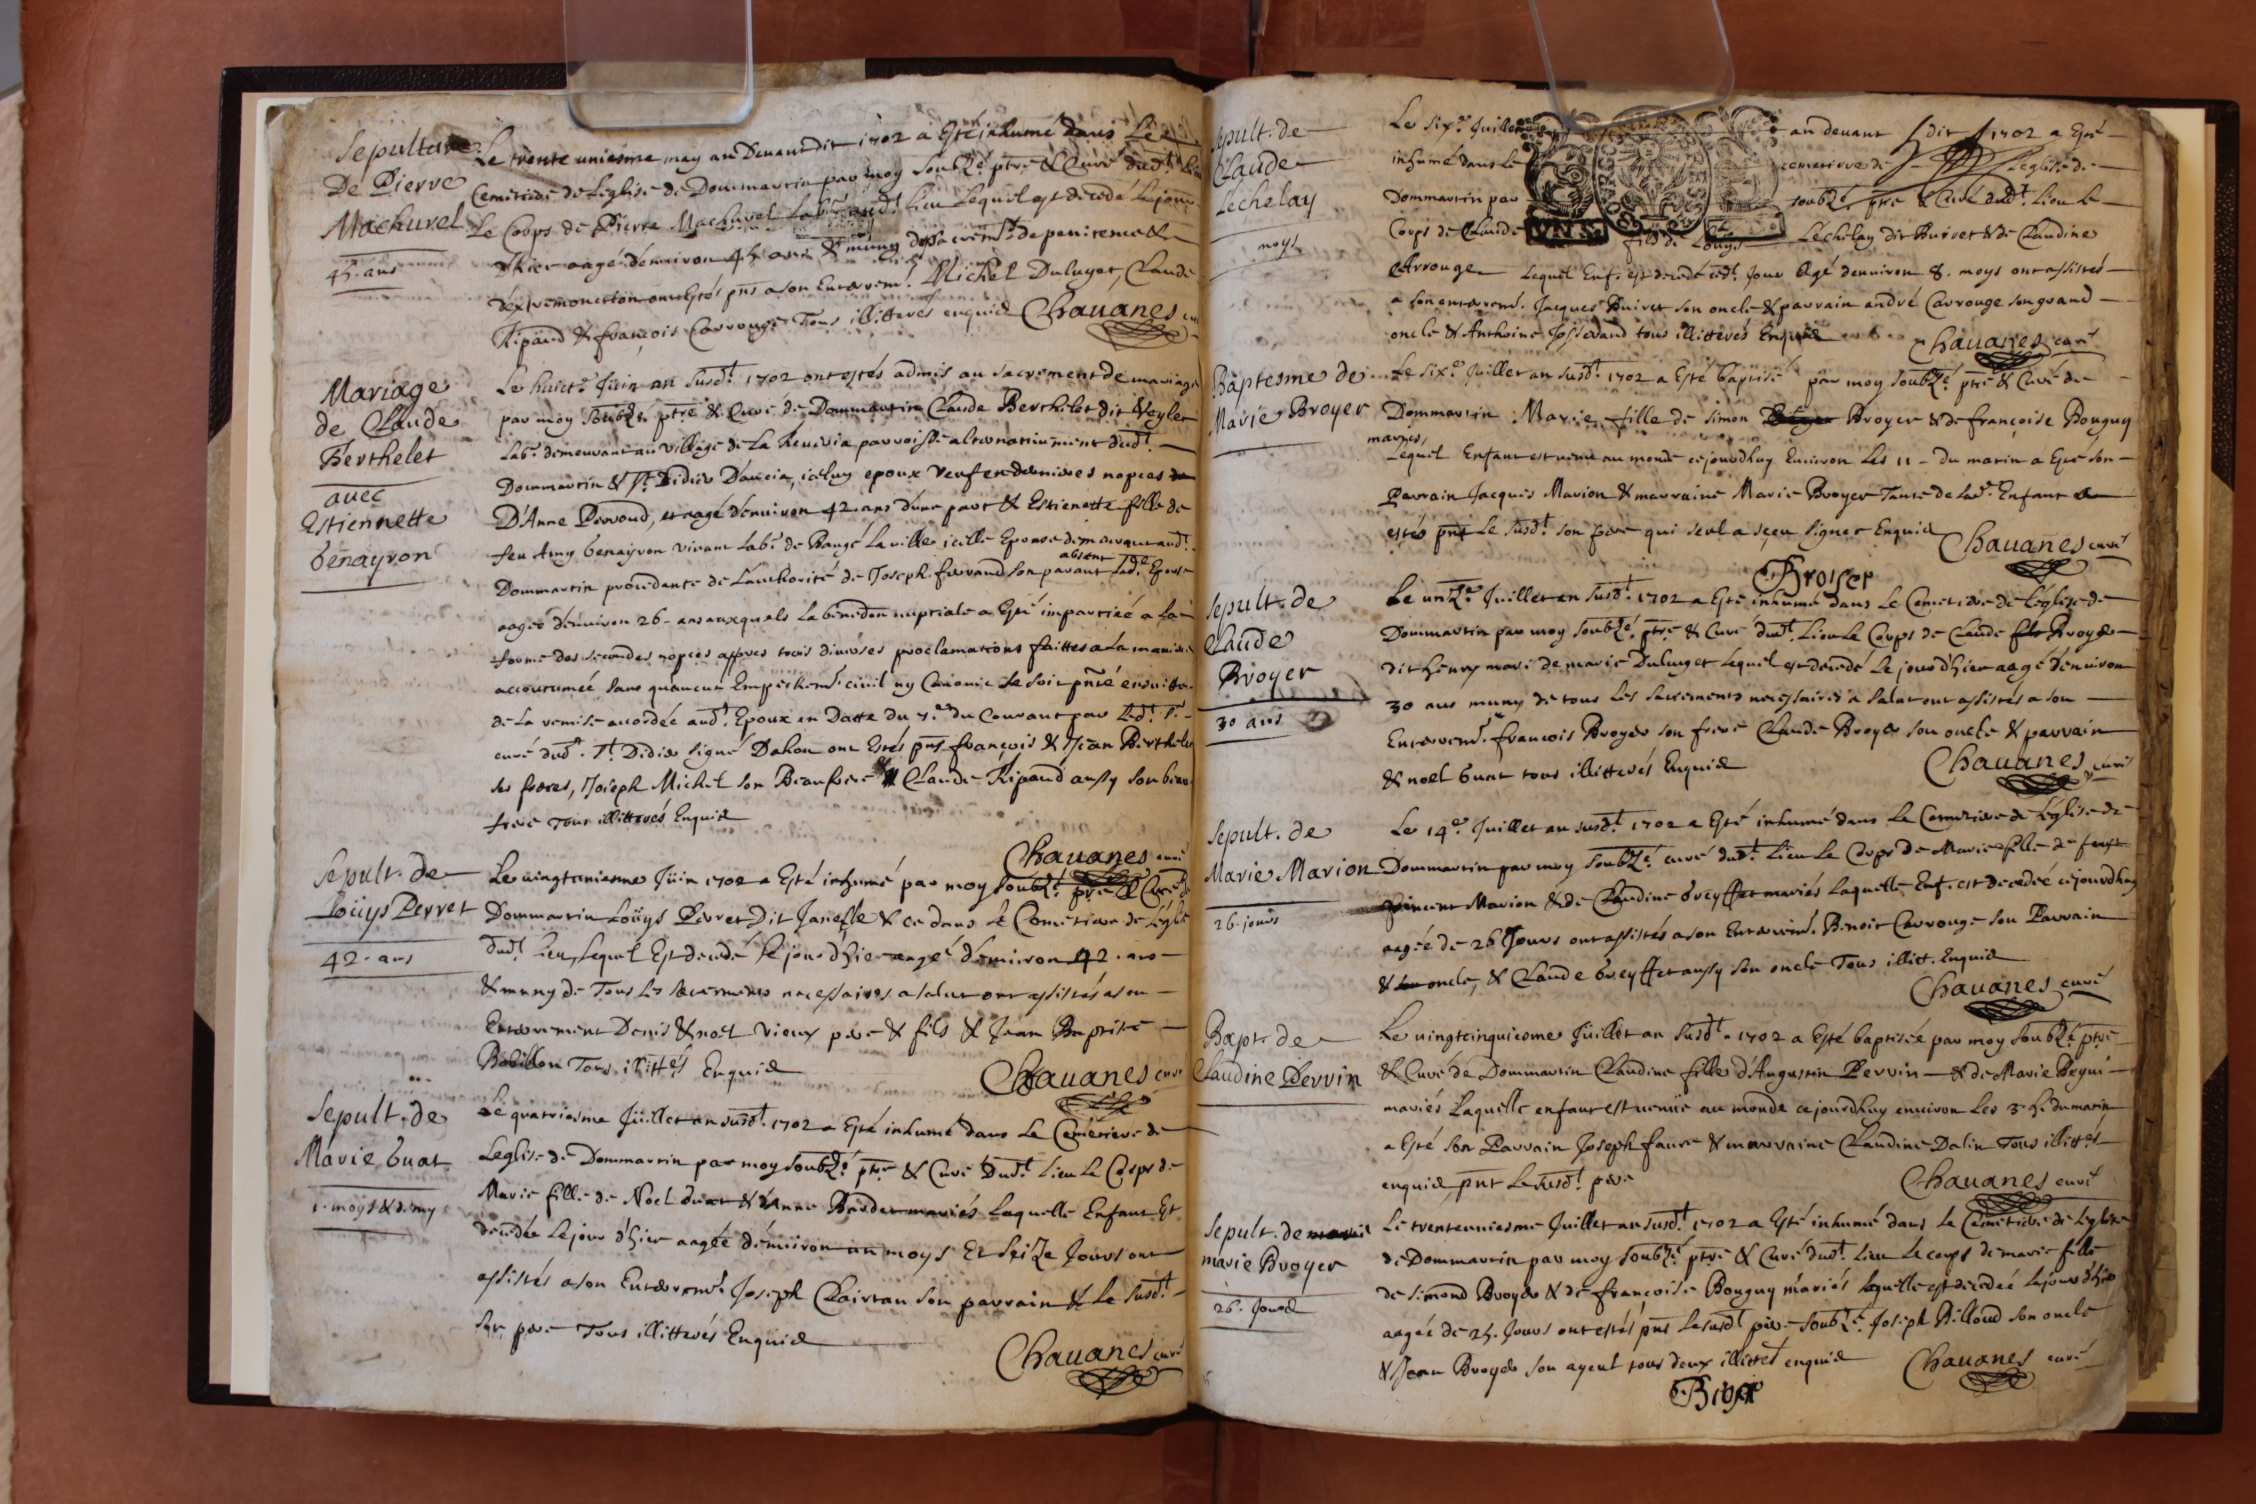 Sepulture
De Pierre
Machurel
45. ans
Le trente uniesme may an Devant dit 1702 a Esté inhumé dans Le
Cemetiere de L'eglise de Dommartin par moy soubzé ptre & Curé dudt Lieu
Le Corps de Pierre Machurel Labr audt Lieu Lequel est decedé Le jour
d'hier aagé d'environ 45 ans & muny des sacremts de penitence &
d'extremonction ont Estés pnts a son Enterremt. Michel Duluget, Claude
Ripaud & françois Carrouge Tous illitterés enquis Chauanes
Mariage
de Claude
Berthelet
avec
Estiennette
benayron
Le huicte Jüin an susdt. 1702 ont estés admis au sacrement de mariage
par moy Soubzé ptre & Curé de Dommartin Claude Berthelet dit Veylet
Labr. demeurant au village de La parroisse alternativement dudt
Dommartin & St Didier D'aucia, iceluy epoux veuf en dernieres nopces
D'Anne Perroud, et aagé d'environ 42 ans d'une part & Estienette fille de
feu Amy benayron vivant Labr. de Baugé La ville, icelle Epouse demeurant audt.
Dommartin procedante de L'authorité de Joseph ferrand son parant absent Lade. Epouse
aagée d'environ 26 ans auxquels La benedon nuptiale a Esté impartiée a La
forme des secondes nopces appres trois diverses proclamations faittes a La maniere
accoutumée sans qu'aucun Empeschemt. civil ny Canonic se soit pnté ensuitte
de La remise accordée audt. Epoux en Datte du 7.e du Courant par Ledt. Sr.
curé dudt. St. Didier signé Dahon ont Estés pnts françois & Jean Berthelet
ses freres, Joseph Michel son Beaufrere & Claude Ripaud aussy son beau
frere Tous illitterés Enquis
Chauanes curé
Sepult. de
Loüys Perret
42. ans
Le vingtuniesme Jüin 1702 a Esté inhumé par moy soubzé. ptre & Curé de
Dommartin Loüys Perret Dit & ce dans Le Cemetiere de L'église
dudt Lieu Lequel Est decedé Le jour d'hier aagé d'environ 42. ans
& muny de Tous Les sacrements necessaires a salut ont assistés a son
Enterrement Denis & noel vieux pere & fils & Jean Baptiste
Bouillon Tous illittés Enquis
Chauanes curé
Sepult. de
Marie buat
1. moys & demy
Le quatriesme Jüillet an susdt. 1702 a Esté inhumé dans Le Cemetiere de
L'eglise de Dommartin par moy soubzé. ptre & Curé Dudt Lieu Le Corps de
Marie fille de Noel buat & d'Anne mariés Laquelle Enfant Est
decedée Le jour d'hier aagée d'environ un moys Et seize Jours ont
assistés a son Enterremt. Joseph Clairtan son parrain & Le susdt
son pere Tous illitterés Enquis
Chauanes curé
Sepult. de
Claude
Lechelay
moys
Le sixe. Juillet an devant dit 1702 a Esté
inhumé dans Le cemetierre de L'eglise de
Dommartin par soubzé ptre & Curé dudt. Lieu Le
Corps de Claude fils de Louys Lechelay dit Buiret & de Claudine
Carrouge Lequel Enft. est decedé cedt. Jour Agé d'environ 8. moys ont assistés
a son enterremt. Jacques Buiret son oncle & parrain andré Carrouge son grand
oncle & Anthoine Josserand tous illitterés Enquis
Chauanes curé
Baptesme de
Marie Broyer
Le sixe. Juillet an susdt. 1702 a Esté baptisé par moy soubzé. ptre & Curé de
Dommartin Marie fille de simon Broyer & de françoise Bouguy
mariés,
Lequel Enfant est venu au monde ce jourdhuy Environ Les 11 du matin a Esté son
Parrain Jacques Marion & marraine Marie Broyer Tante de Lade. Enfant
estés pnt Le susdt. son pere qui seul a sçeu signer Enquis
Chauanes curé
Broyer
Sepult. de
Claude
Broyer
30 ans
Le unze. Juillet an susdt. 1702 a Esté inhumé dans Le Cemetiere de L'église de
Dommartin par moy soubzé. ptre & Curé dudt. Lieu Le Corps de Claude Broyer
dit henry mari de marie Duluget Lequel est decedé Le jour d'hier aagé d'environ
30 ans muny de tous Les sacrements necessaires a salut ont assistés a son
Enterremt. francois Broyer son frere Claude Broyer son oncle & parrain
& noel buat tous illitterés Enquis
Chauanes curé
Sepult. de
Marie Marion
26. jours
Le 14e. Juillet an susdt. 1702 a Esté inhumé dans Le Cemetiere de L'église de
Dommartin par moy soubzé. curé dudt. Lieu Le Corps de Marie fille de
Vincent Marion & de Claudine breyffet mariés Laquelle Enft. est decedée ce jourdhuy
aagée de 26 Jours ont assistés a son Enterremt. Benoit Carrouge son Parrain
& oncle, & Claude breyffet aussy son oncle Tous illitt. Enquis
Chauanes curé
Bapt. de
Claudine Pervin
Le vingtcinquiesme Jüillet an susdt. 1702 a Esté baptisée par moy soubzé ptre
& Curé de Dommartin Claudine fille d'Augustin Pervin & de Marie Begui
mariés Laquelle enfant est venüe au monde ce jourdhuy environ Les 3 h. du matin
a Esté son Parrain Joseph faure & marraine Claudine Dalin Tous illittés
enquis pnt Le susdt. pere
Chauanes curé
Sepult. de
marie Broyer
26. Jours
Le trenteuniesme Juillet an susdt. 1702 a Esté inhumé dans Le Cemetiere de L'eglise
de Dommartin par moy soubzé. ptre & Curé dudt. Lieu Le corps de marie fille
de simond Broyer & de françoise Bouguy mariés Laquelle est decedée Le jour d'hier
aagée de 25. Jours ont estés pnts Le susdt pere soubzé. Joseph Billoud son oncle
& Jean Broyer son ayeul tous deux illittet enquis
Chauanes curé
Broyer